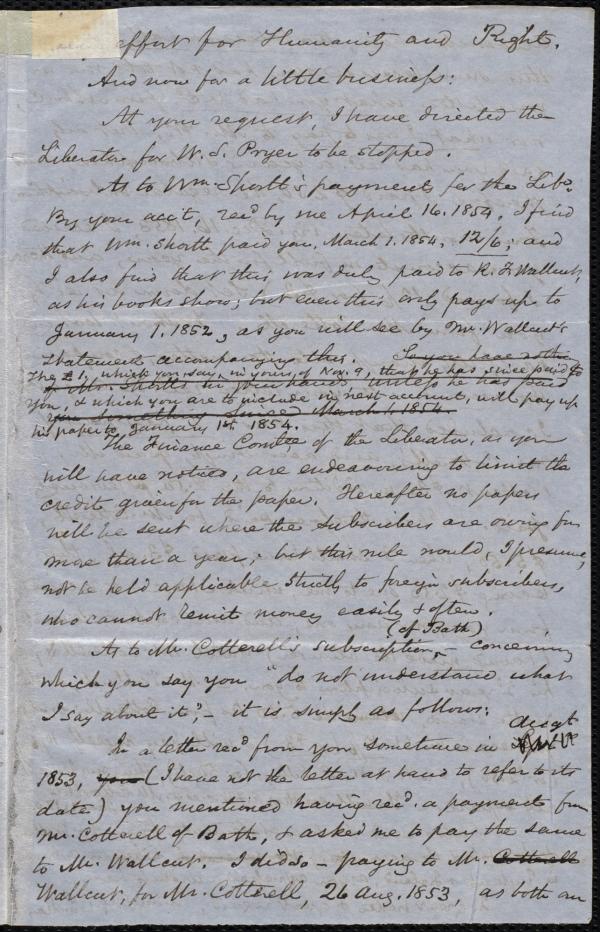 effort for Humanity and Right.
And now for a little business:
At your request, I have directed the
Liberator for W. S. Pryer to be stopped.
As to Wm. Shortt's payment for the Libr.
By your acc't, rec'd by me April 16. 1854, I find
that Wm. Shortt paid you, March 1. 1854, 12/6; and
I also find that this was duly paid to R. F. Wallcut,
as his books show; but even this only pays up to
January 1. 1852, as you will see by Mr. Wallcut's
statement accompanying this. So you have nothing
The £1, which you say, in yours of Nov. 9, that he has since paid to
of Mr. Shortt's in your hands, unless he has paid
you, & which you are to include in next account, will pay up
you something since March 1, 1854.
his paper to January 1st 1854.
The Finance Comtee of the Liberator, as you
will have noticed, are endeavoring to limit the
credit given for the paper. Hereafter no papers
will be sent where the subscribers are owing for
more than a year; but this rule would, I presume,
not be held applicable strictly to foreign subscribers,
who cannot remit money easily & often.
(of Bath)
As to Mr. Cotterell's subscription, – concerning
which you say you "do not understand what
I say about it", – it is simply as follows:
Augt
In a letter rec'd from you sometime in April
1853, you (I have not the letter at hand to refer to its
date) you mentioned having rec'd. a payment from
Mr. Cotterell of Bath, & asked me to pay the same
to Mr. Wallcut. I did so – paying to Mr. Cotterell
Wallcut, for Mr. Cotterell, 26 Aug. 1853, as both our